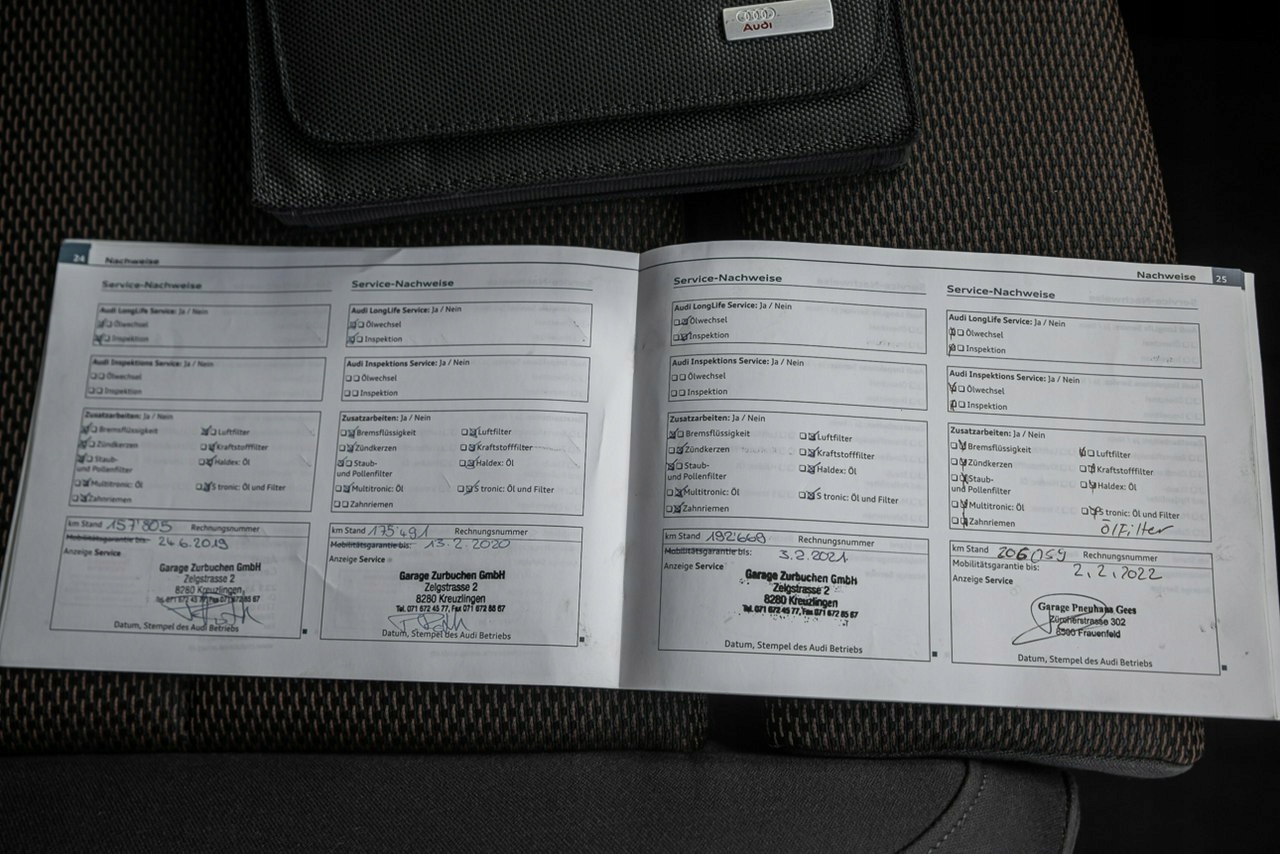 Audi
24
Nachweise
Service-Nachweise
Audi LongLife Service: Ja / Nein
Ölwechsel
Inspektion
Audi Inspektions Service: Ja / Nein
Ölwechsel
Inspektion
Zusatzarbeiten: Ja / Nein
Bremsflüssigkeit
Luftfilter
Zündkerzen
Kraftstofffilter
Staub-
und Pollenfilter
Haldex: Öl
Multitronic: Öl
S tronic: Öl und Filter
Zahnriemen
km Stand 157'805 Rechnungsnummer
Mobilitätsgarantie bis: 24.6.2019
Anzeige Service
Garage Zurbuchen GmbH
Zelgstrasse 2
8280 Kreuzlingen
Tel. 071 672 45 77, Fax 071 672 85 67
Datum, Stempel des Audi Betriebs
Service-Nachweise
Audi LongLife Service: Ja / Nein
Ölwechsel
Inspektion
Audi Inspektions Service: Ja / Nein
Ölwechsel
Inspektion
Zusatzarbeiten: Ja / Nein
Bremsflüssigkeit
Luftfilter
Zündkerzen
Kraftstofffilter
Staub-
und Pollenfilter
Haldex: Öl
Multitronic: Öl
S tronic: Öl und Filter
Zahnriemen
km Stand 175'491 Rechnungsnummer
Mobilitätsgarantie bis: 13.2.2020
Anzeige Service
Garage Zurbuchen GmbH
Zelgstrasse 2
8280 Kreuzlingen
Tel. 071 672 45 77, Fax 071 672 85 67
Datum, Stempel des Audi Betriebs
Nachweise
25
Service-Nachweise
Audi LongLife Service: Ja / Nein
Ölwechsel
Inspektion
Audi Inspektions Service: Ja / Nein
Ölwechsel
Inspektion
Zusatzarbeiten: Ja / Nein
Bremsflüssigkeit
Luftfilter
Zündkerzen
Kraftstofffilter
Staub-
und Pollenfilter
Haldex: Öl
Multitronic: Öl
S tronic: Öl und Filter
Zahnriemen
km Stand 192'669 Rechnungsnummer
Mobilitätsgarantie bis: 3.2.2021
Anzeige Service
Garage Zurbuchen GmbH
Zelgstrasse 2
8280 Kreuzlingen
Tel. 071 672 45 77, Fax 071 672 85 67
Datum, Stempel des Audi Betriebs
Service-Nachweise
Audi LongLife Service: Ja / Nein
Ölwechsel
Inspektion
Audi Inspektions Service: Ja / Nein
Ölwechsel
Inspektion
Zusatzarbeiten: Ja / Nein
Bremsflüssigkeit
Luftfilter
Zündkerzen
Kraftstofffilter
Staub-
und Pollenfilter
Haldex: Öl
Multitronic: Öl
S tronic: Öl und Filter
Zahnriemen
Ölfilter
km Stand 206059 Rechnungsnummer
Mobilitätsgarantie bis: 2,2,2022
Anzeige Service
Garage Pneuhaus Gees
Zürcherstrasse 302
8500 Frauenfeld
Datum, Stempel des Audi Betriebs